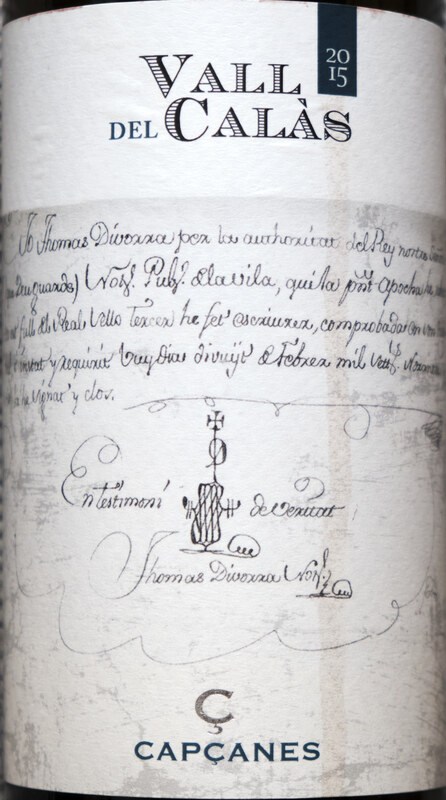 VALL
2015
DEL CALÀS
Jo Thomas Divorra per la authoritat del Rey nostre
Not.ʳ Pub.ʳ dela vila, qui la pñt Apocha
full del Real Sello tercer he fet escriurer, comprobada
instat y requirit vuy dia divuyt de Febrer mil
he signat y clos.
En testimoni de veritat
Thomas Divorra Not.ʳ
Ç
CAPÇANES